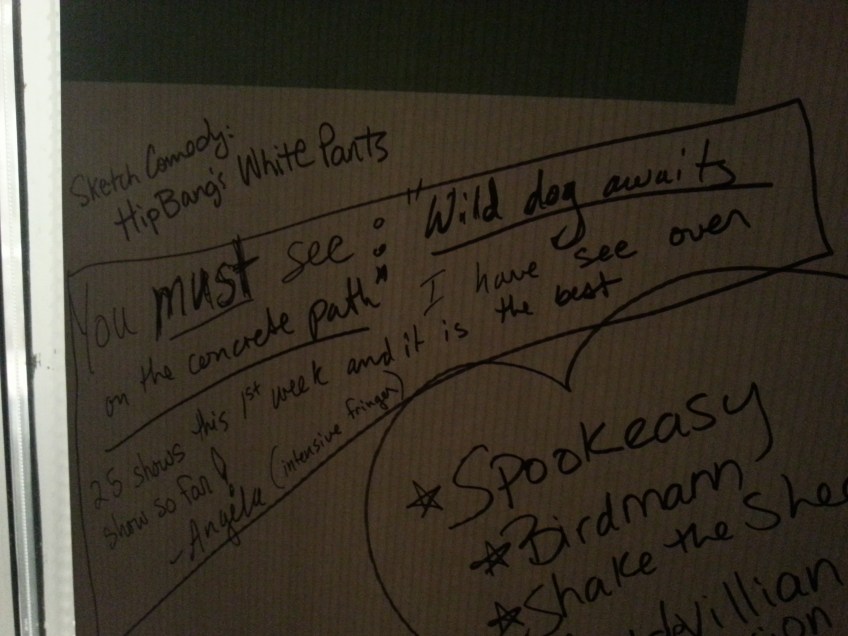 Sketch Comedy:
HipBang's White Pants
You must see : "Wild dog awaits
on the concrete path" I have see over
25 shows this 1st week and it is the best
show so far!
- Angela (intensive fringer)
Spookeasy
Birdmann
Shake the Shee
villian
ion